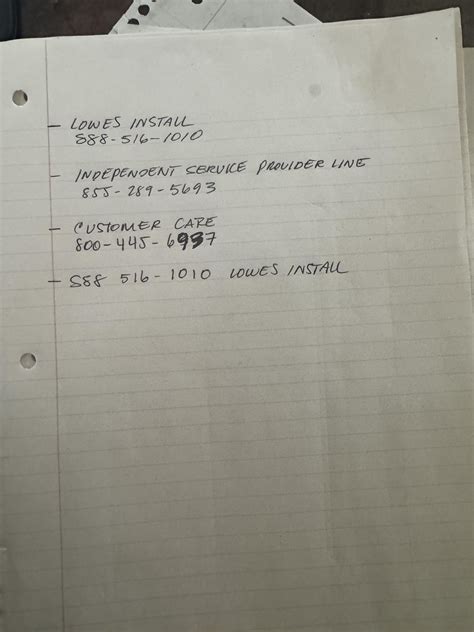 - LOWES INSTALL
888-516-1010
- INDEPENDENT SERVICE PROVIDER LINE
855-289-5693
- CUSTOMER CARE
800-445-6937
- 888 516-1010 LOWES INSTALL